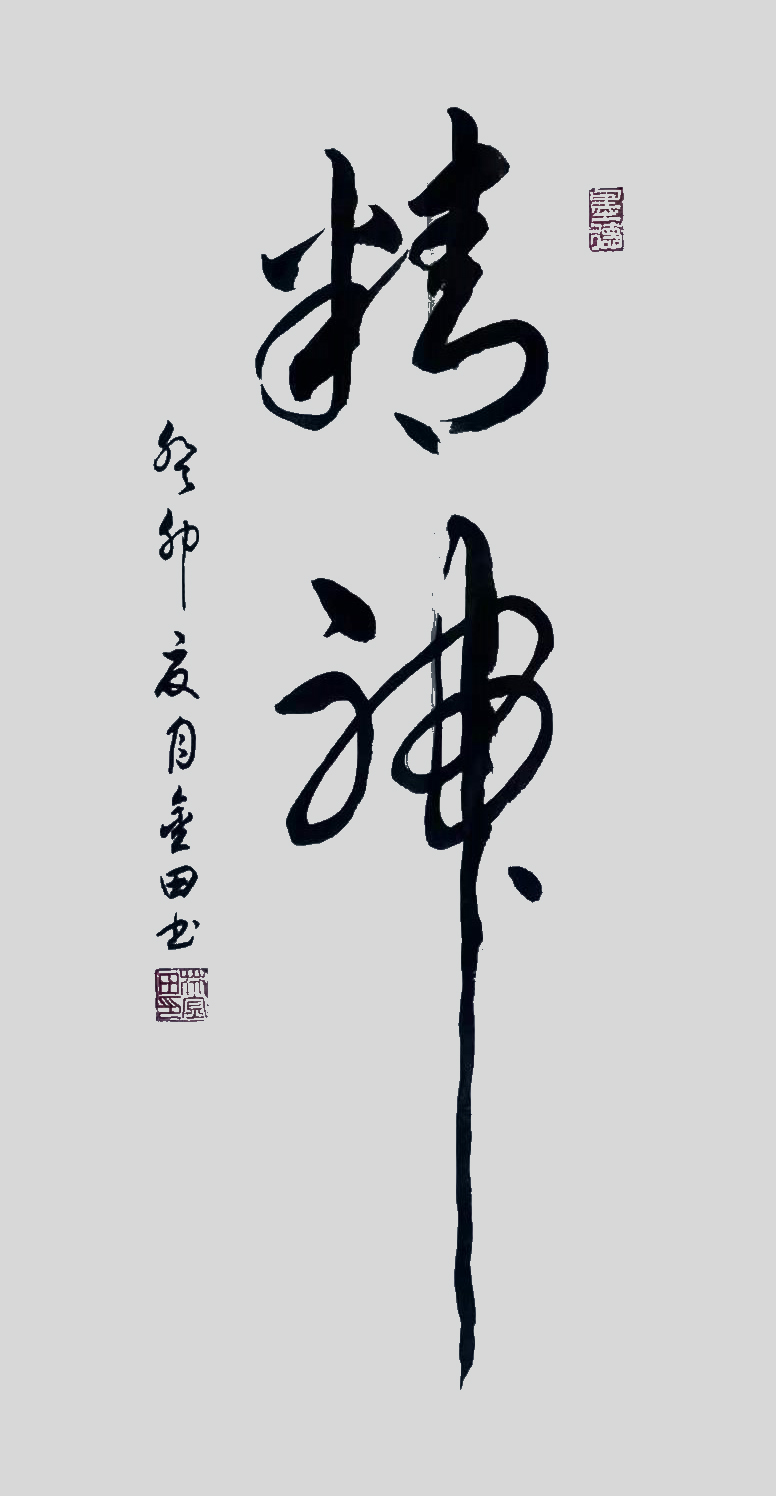 精神
癸卯夏月金田书